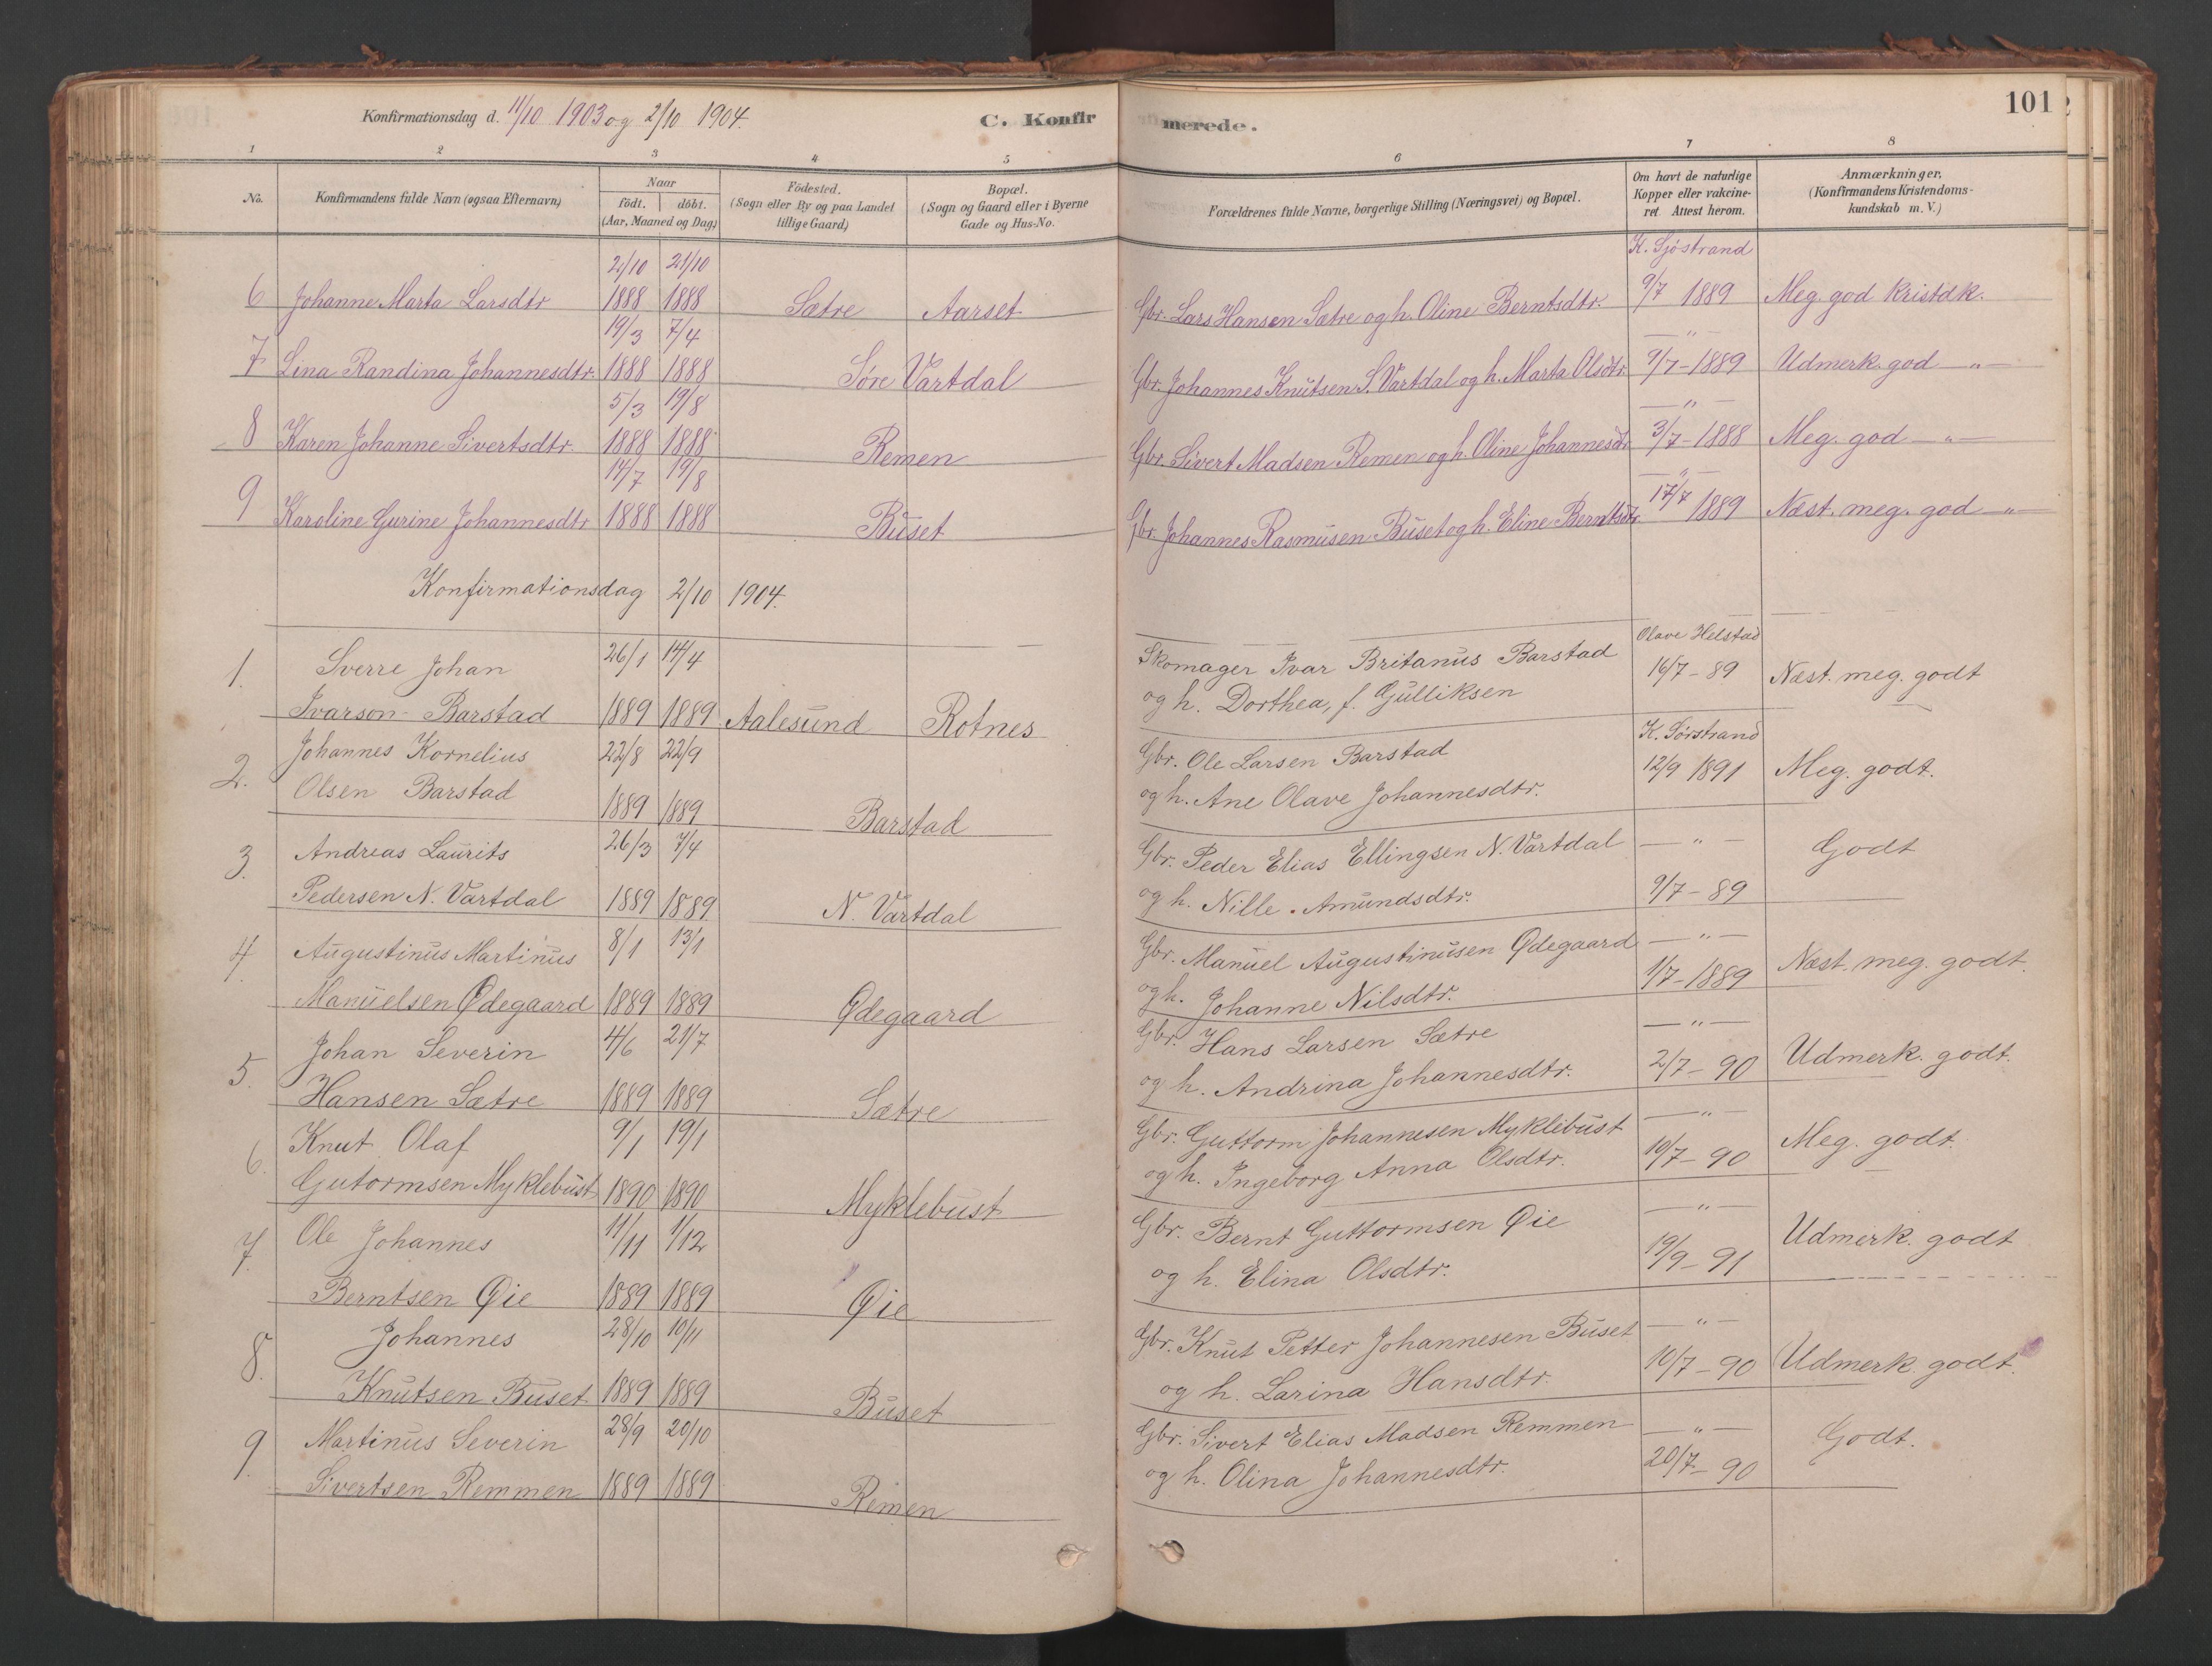 Konfirmationsdag d. 11/10 1903 og 2/10 1904.
C. Konfir
merede.
101
1
2
3
4
5
6
7
8
No.
Konfirmandens fulde Navn (ogsaa Efternavn)
Naar
födt. döbt.
(Aar, Maaned og Dag)
Födested.
(Sogn eller By og paa Landet
tillige Gaard)
Bopæl.
(Sogn og Gaard eller i Byerne
Gade og Hus-No.
Forældrenes fulde Navne, borgerlige Stilling (Næringsvei) og Bopæl.
Om havt de naturlige
Kopper eller vakcine-
ret. Attest herom.
Anmærkninger.
(Konfirmandens Kristendoms-
kundskab m. V.)
2/10 21/10 K. Sjöstrand
6 Johanne Marta Larsdtr 1888 1888 Sætre Aarset Gbr. Lars Hansen Sætre og h. Oline Berntsdtr. 9/7 1889 Meg. god kristdk.
19/3 7/4 — " —
7 Lina Randina Johannesdtr. 1888 1888 Søre Vartdal Gbr. Johannes Knutsen S. Vartdal og h. Marta Olsdtr 9/7-1889 Udmerk. god — " —
5/3 19/8 — " —
8 Karen Johanne Sivertsdtr. 1888 1888 Remen Gbr. Sivert Madsen Remen og h. Oline Johannesdtr 3/7-1888 Meg. god — " —
14/7 19/8 — " —
9 Karoline Gurine Johannesdtr 1888 1888 Buset Gbr. Johannes Rasmusen Buset og h. Eline Berntsdtr. 17/7 1889 Næst. meg. god — " —
Konfirmationsdag 2/10 1904.
1. Sverre Johan 26/1 14/4 Skomager Ivar Britanus Barstad Olave Helstad
16/7-89 Næst. meg. godt
Ivarson Barstad 1889 1889 Aalesund Rotnes og h. Dorthea, f. Gulliksen
2. Johannes Kornelius 22/8 22/9 Gbr. Ole Larsen Barstad K. Sörstrand
12/9 1891 Meg. godt.
Olsen Barstad 1889 1889 Barstad og h. Ane Olave Johannesdtr.
3. Andreas Laurits 26/3 7/4 Gbr. Peder Elias Ellingsen N. Vartdal — " — Godt
Pedersen N. Vartdal 1889 1889 N. Vartdal og h. Nille Amundsdtr. 9/7-89
4 Augustinus Martinus 8/1 13/1 Gbr. Manuel Augustinusen Ødegaard — " — Næst. meg. godt.
Manuelsen Ødegaard 1889 1889 Ødegaard og h. Johanne Nilsdtr. 1/7-1889
5. Johan Severin 4/6 21/7 Gbr. Hans Larsen Sætre — " — Udmerk. godt.
Hansen Sætre 1889 1889 Sætre og h. Andrina Johannesdtr. 2/7-90
6. Knut Olaf 9/1 19/1 Gbr. Guttorm Johannesen Myklebust — " — Meg. godt.
Gutormsen Myklebust 1890 1890 Myklebust og h. Ingeborg Anna Olsdtr. 10/7-90
7. Ole Johannes 11/11 1/12 Gbr. Bernt Guttormsen Øie — " — Udmerk. godt
Berntsen Øie 1889 1889 Øie og h. Elina Olsdtr. 19/9-91
8. Johannes 28/10 10/11 Gbr. Knut Petter Johannesen Buset — " — Udmerk. godt.
Knutsen Buset 1889 1889 Buset og h. Larina Hansdtr. 10/7-90
9. Martinus Severin 28/9 20/10 Gbr. Sivert Elias Madsen Remmen — " — Godt.
Sivertsen Remmen 1889 1889 Remen og h. Olina Johannesdtr. 20/7-90